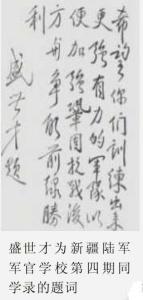 希望你们训练出来
更强有力的军队以
便加强巩固抗战后
方与争取前线胜
利
盛世才题
盛世才为新疆陆军
军官学校第四期同
学录的题词